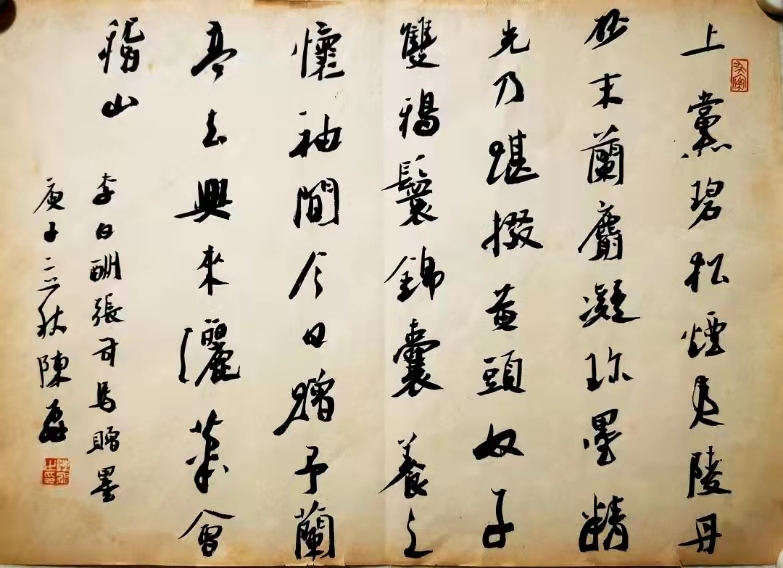 上黨碧松煙夷陵丹
砂末蘭麝凝珍墨精
光乃堪掇黄頭奴子
雙鴉鬟錦囊養之
懷袖間今日贈予蘭
亭去興來灑筆會
稽山
李白酬張司馬贈墨
庚子立秋陳